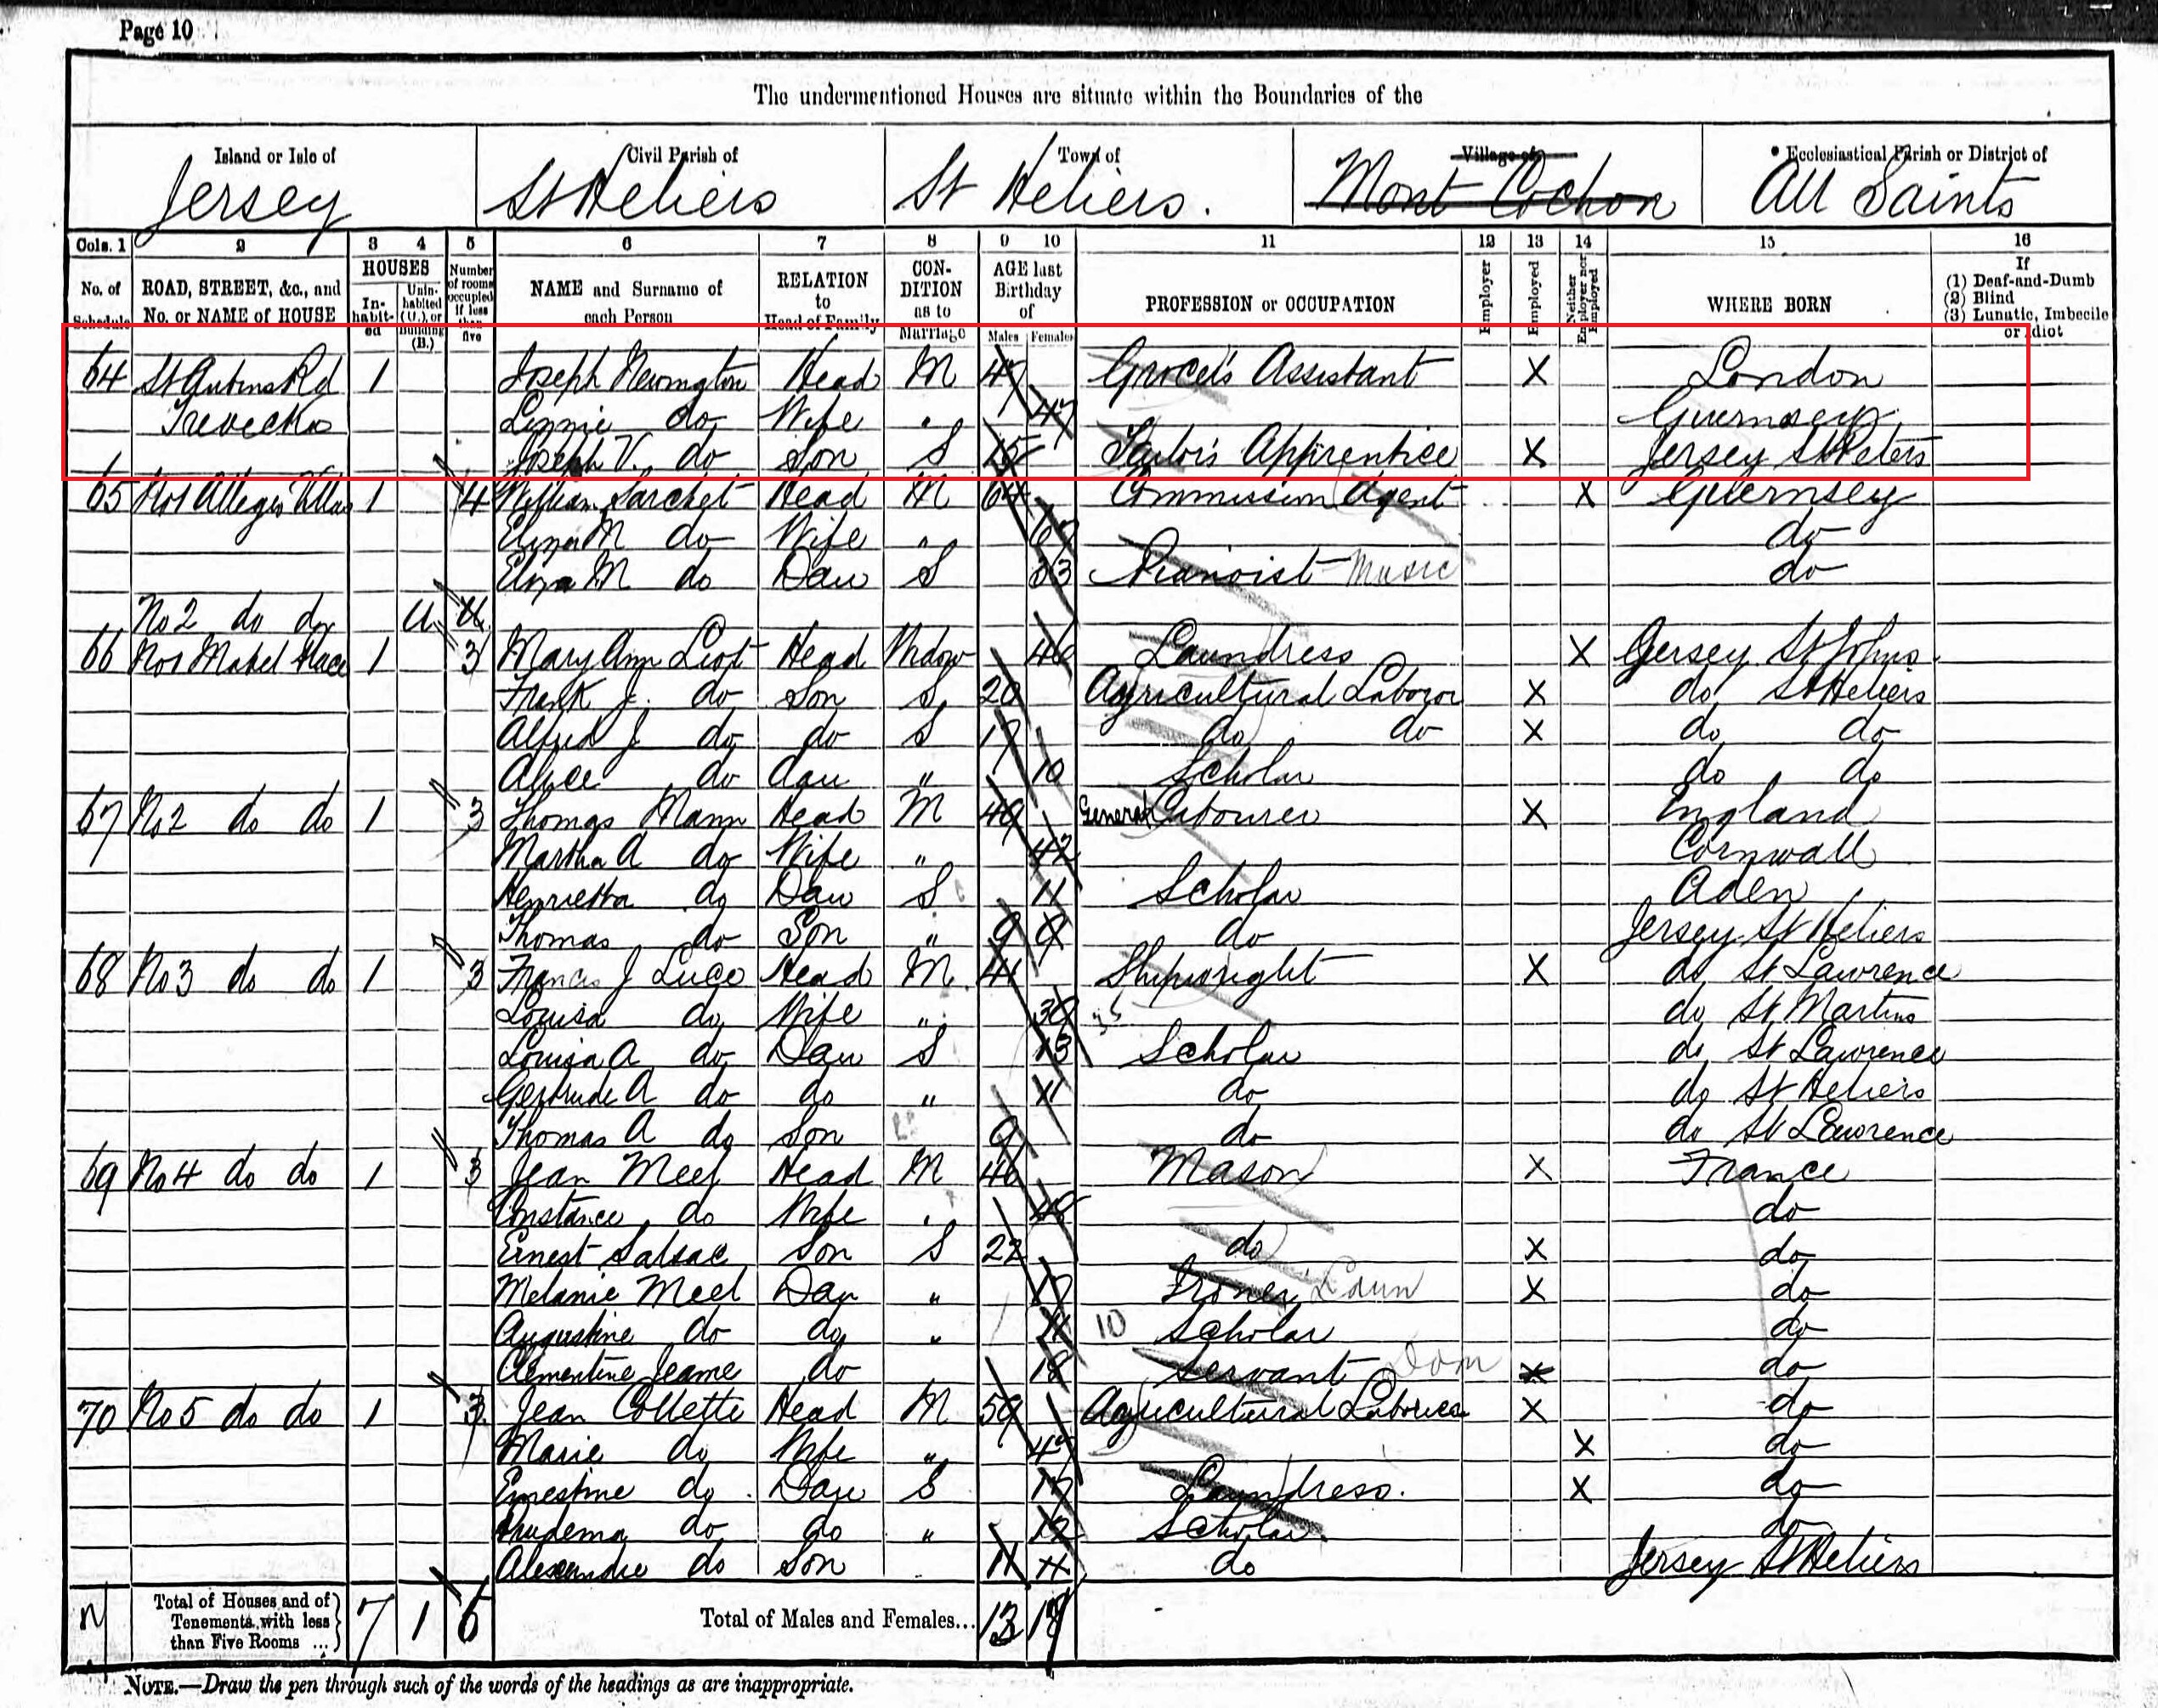 Page 10
The undermentioned Houses are situate within the Boundaries of the
Island or Isle of Civil Parish of Town of Village of • Ecclesiastical Parish or District of
Jersey St Heliers St Heliers. Mont Cochon All Saints
Cols. 1 2 3 4 5 6 7 8 9 10 11 12 13 14 15 16
No. of Schedule ROAD, STREET, &c., and No. or NAME of HOUSE HOUSES In-habit-ed Unin-habited (U.), or Building (B.) Number of rooms occupied if less than five NAME and Surname of each Person RELATION to Head of Family CON-DITION as to Marriage AGE last Birthday of Males Females PROFESSION or OCCUPATION Employer Employed Neither Employer nor Employed WHERE BORN If (1) Deaf-and-Dumb (2) Blind (3) Lunatic, Imbecile or Idiot
64 St Aubins Rd 1 Joseph Newington Head M 47 Grocer's Assistant X London
Trevecka Linnie do Wife " 47 Guernsey
Joseph V. do Son S 15 Tailor's Apprentice X Jersey St Peters
65 No1 Villas 1 4 William Sarchet Head M 64 Commission Agent X Guernsey
Eliza M do Wife " do
Eliza M do Dau S 33 Pianoist Music do
No 2 do do U
66 No1 Mabel Place 1 3 Mary Ann Head Widow 46 Laundress X Jersey St Johns
Frank J. do Son S 20 Agricultural Laboror X do St Heliers
Alfred J do do S 17 do do X do do
Alice do dau " 10 Scholar do do
67 No2 do do 1 3 Thomas Mann Head M 49 General Labourer X England
Martha A do Wife " 42 Cornwall
Henrietta do Dau S 11 Scholar Aden
Thomas do Son " 9 9 do Jersey St Heliers
68 No3 do do 1 3 Francis J Luce Head M 41 Shipwright X do St Lawrence
Louisa do Wife " 35 do St Martins
Louisa A do Dau S 13 Scholar do St Lawrence
Gertrude A do do " 11 do do St Heliers
Thomas A do Son 9 do do St Lawrence
69 No4 do do 1 3 Jean Meel Head M 46 Mason X France
Constance do Wife " 48 do
Ernest Salsac Son S 22 do X do
Melanie Meel Dau " 17 Ironer Laun X do
Augustine do do " 11 10 Scholar do
Clementine Jeame do 18 Servant Dom X do
70 No5 do do 1 3 Jean Collette Head M 59 Agricultural Laborer X do
Marie do Wife " 47 X do
Ernestine do Dau S 17 Laundress. X do
do do " 12 Scholar. do
Alexandre do Son 11 11 do Jersey St Heliers
Total of Houses and of Tenements with less than Five Rooms ... 7 1 6 Total of Males and Females... 13 18
NOTE.—Draw the pen through such of the words of the headings as are inappropriate.